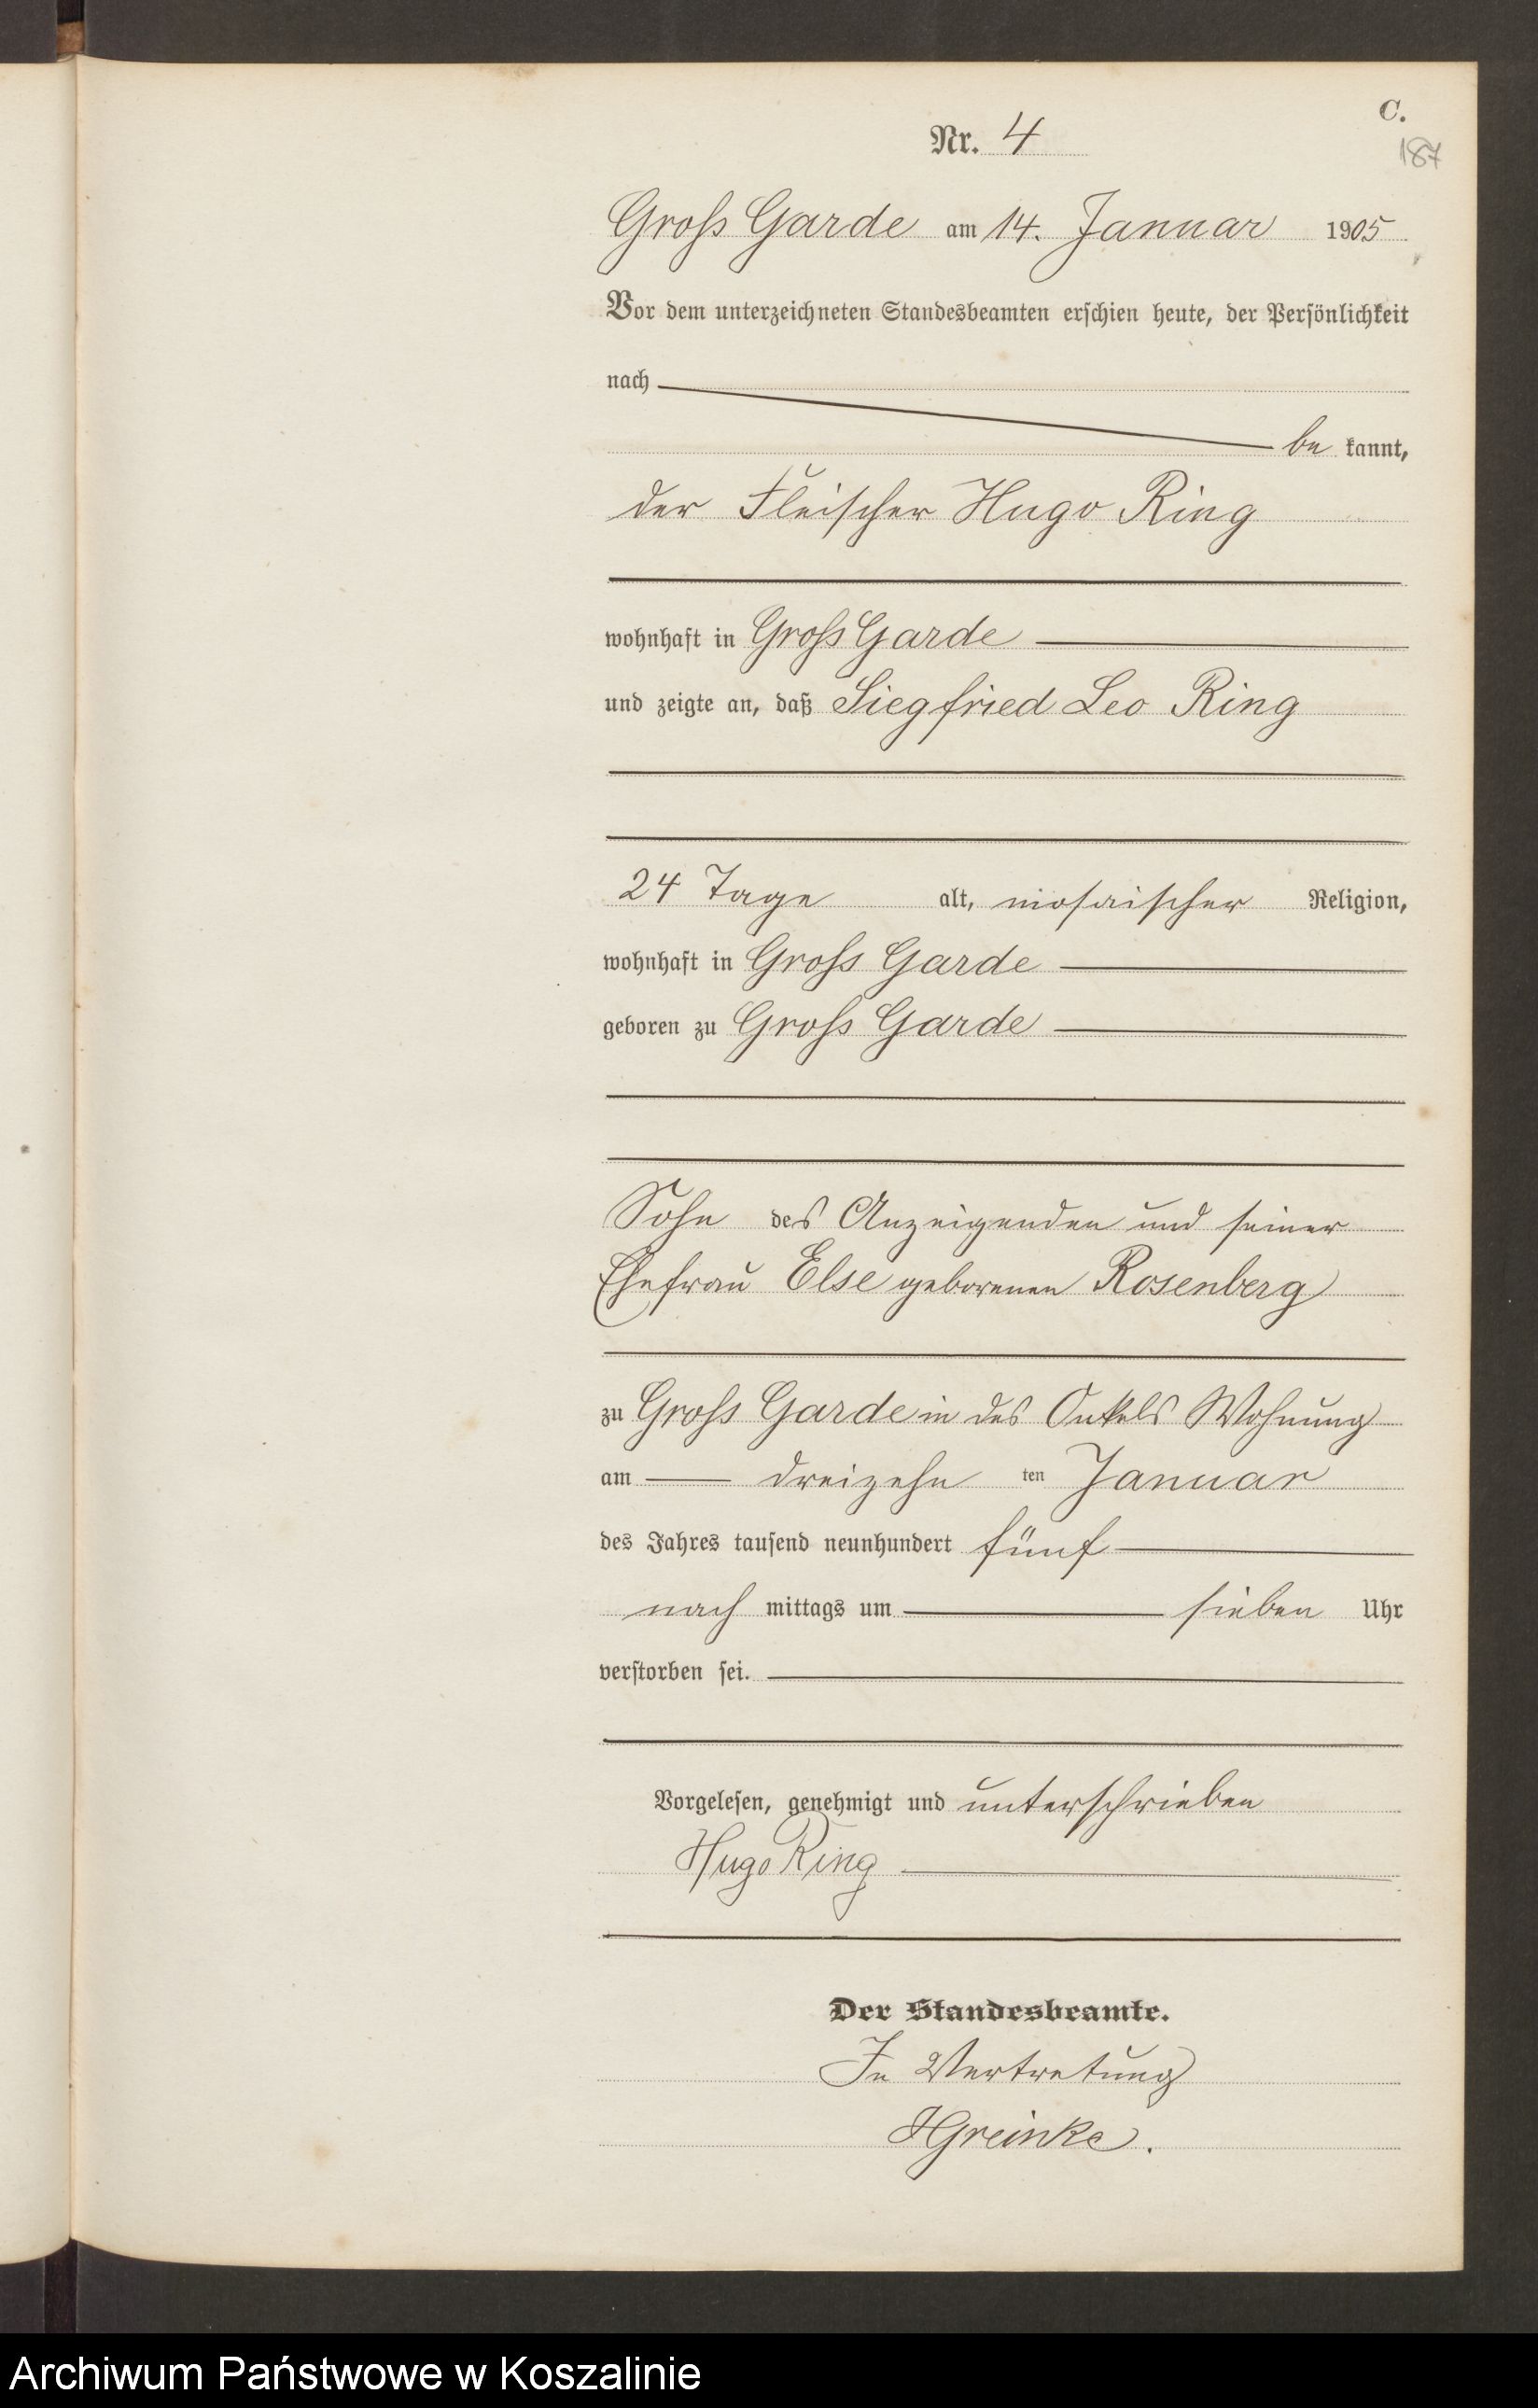 C.
Nr. 4
187
Gross Garde am 14. Januar 1905
Vor dem unterzeichneten Standesbeamten erschien heute, der Persönlichkeit
nach
be kannt,
der Fleischer Hugo Ring
wohnhaft in Gross Garde
und zeigte an, daß Siegfried Leo Ring
24 Tage alt, mosaischer Religion,
wohnhaft in Gross Garde
geboren zu Gross Garde
Sohn des Anzeigenden und seiner
Ehefrau Else geborenen Rosenberg
zu Gross Garde in des Onkels Wohnung
am dreizehn ten Januar
des Jahres tausend neunhundert fünf
nach mittags um sieben Uhr
verstorben sei.
Vorgelesen, genehmigt und unterschrieben
Hugo Ring
Der Standesbeamte.
In Vertretung
HGreinke.
Archiwum Państwowe w Koszalinie